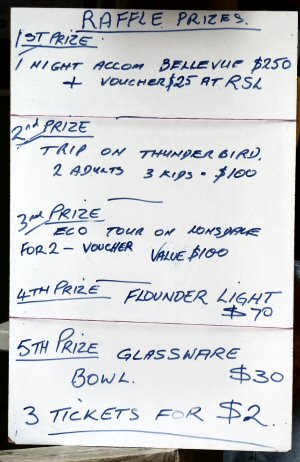 RAFFLE PRIZES.
1ST PRIZE.
1 NIGHT ACCOM BELLEVUE $250
+ VOUCHER $25 AT RSL
2nd PRIZE
TRIP ON THUNDERBIRD.
2 ADULTS 3 KIDS = $100
3rd PRIZE
ECO TOUR ON
FOR 2 - VOUCHER VALUE $100
4TH PRIZE FLOUNDER LIGHT
$70
5TH PRIZE GLASSWARE
BOWL. $30
3 TICKETS FOR $2.